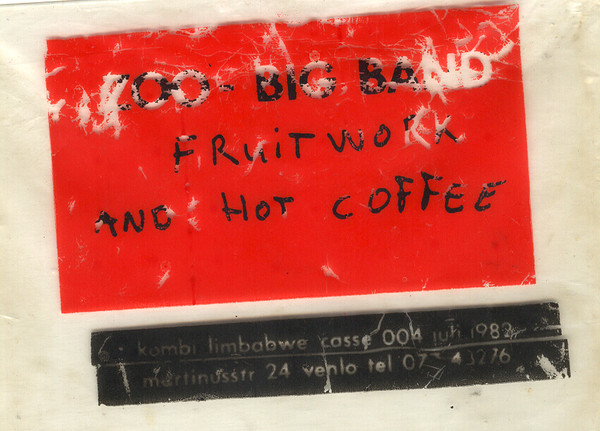 ZOO - BIG BAND
FRUITWORK
AND HOT COFFEE
kombi limbabwe casse 004 juli 1982
martinusstr 24 venlo tel 077 43276